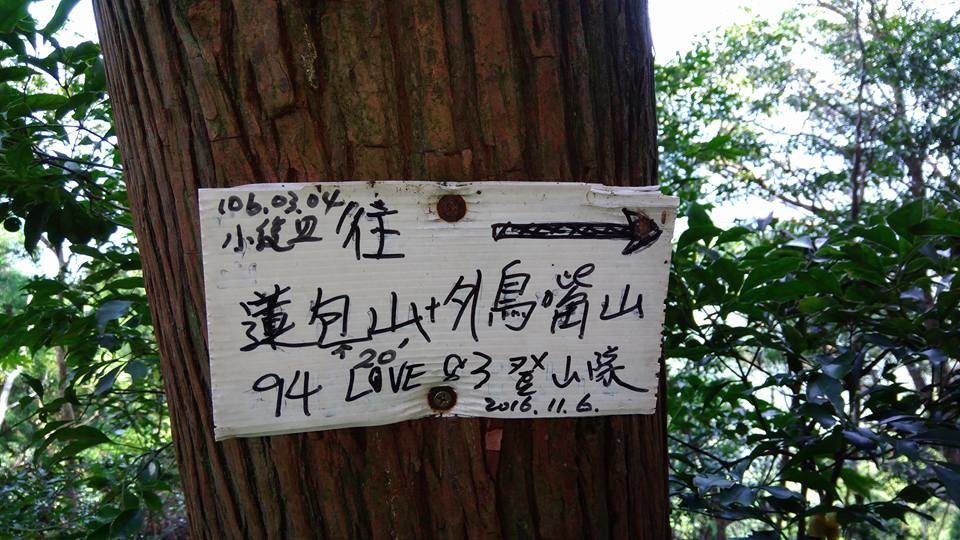 106.03.04
小 往
蓮包山+外鳥嘴山
20'
94 LOVE 83 登山隊
2016.11.6.